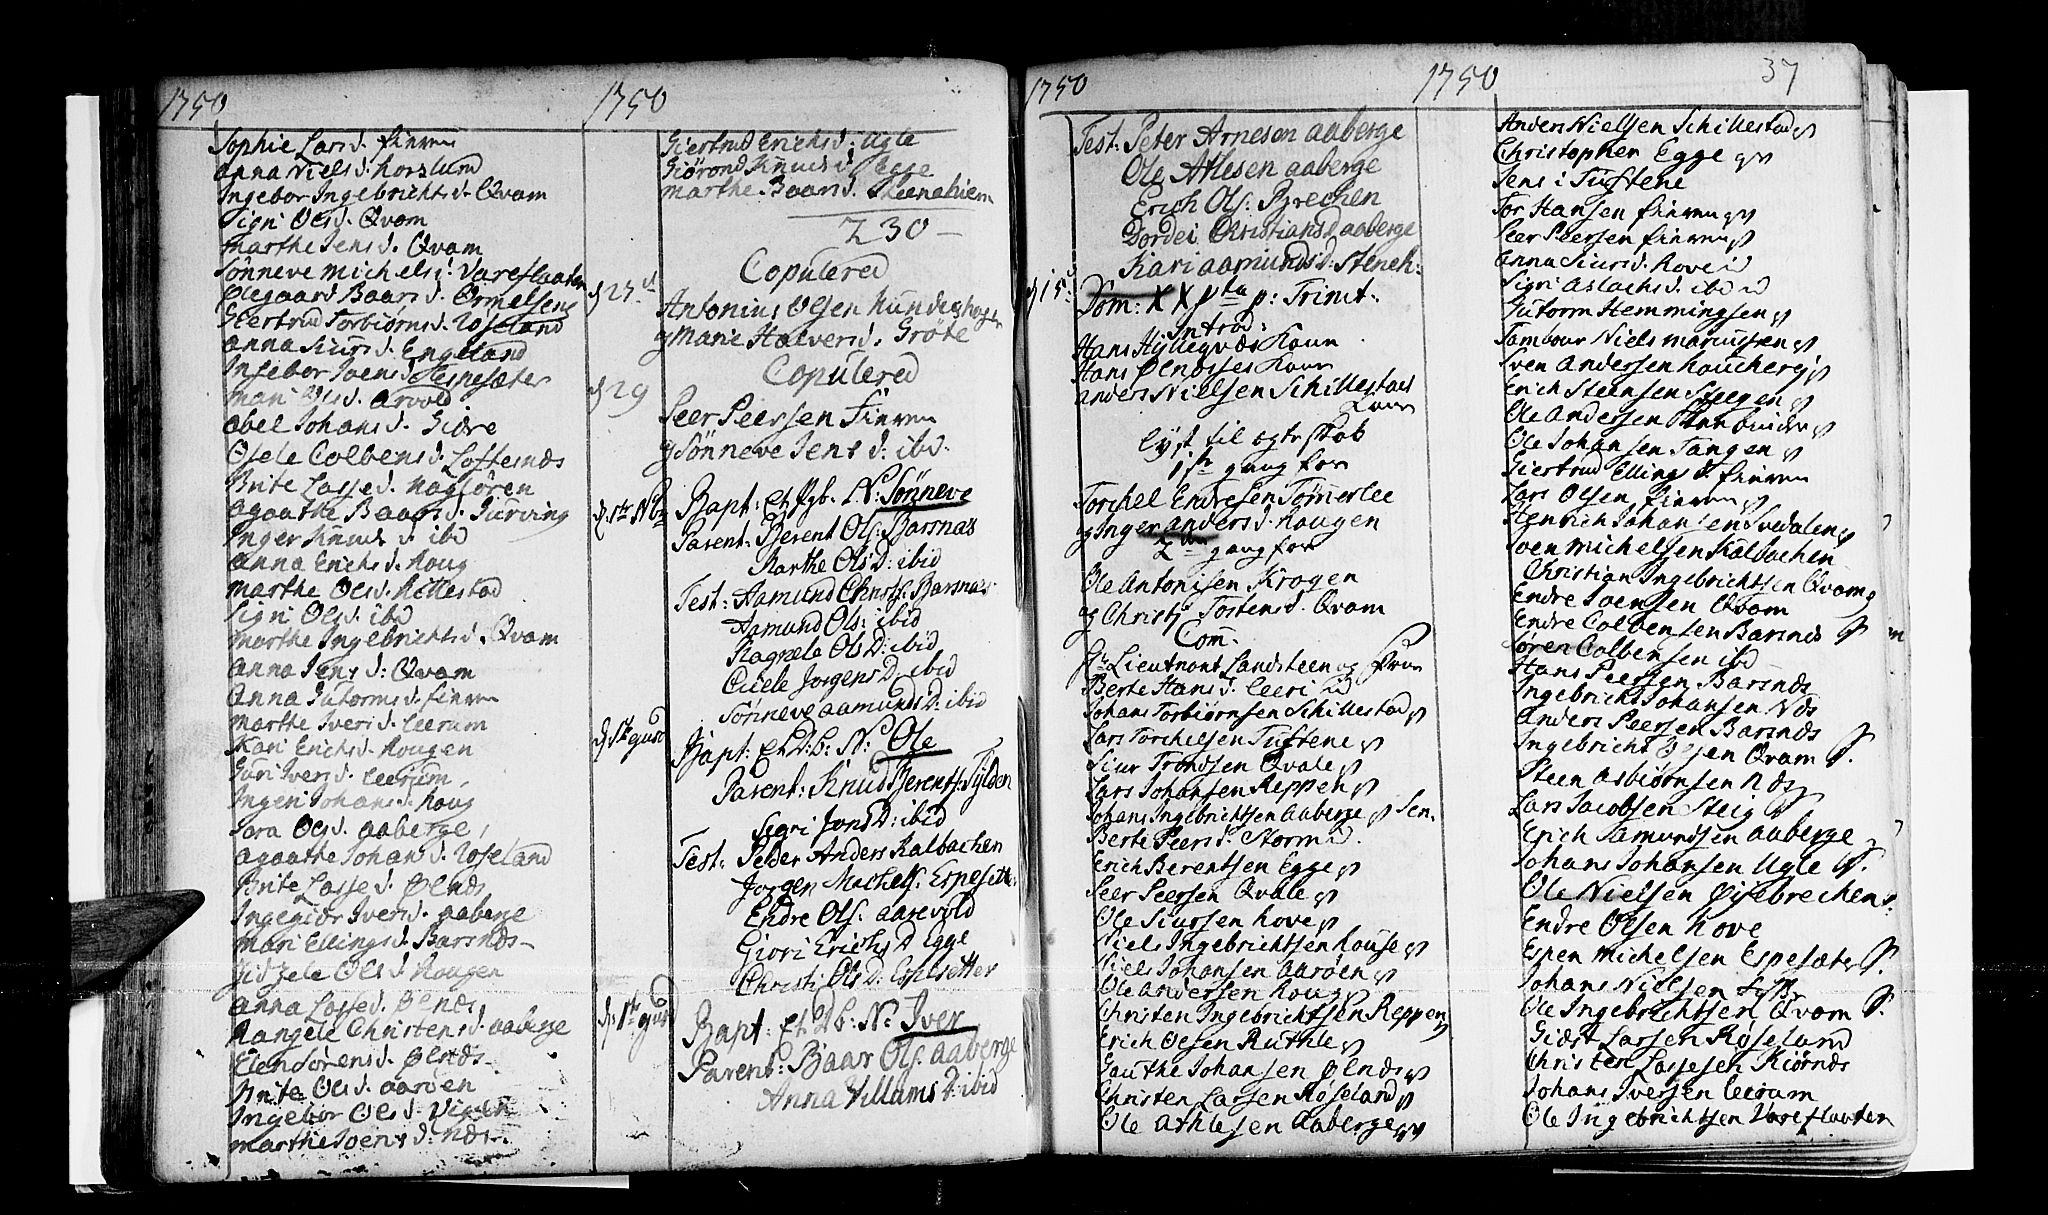 1750
Sophie Lars d. finven
Anna Niels d. horslund
Ingebor Ingebricht d. Qvam
Sigri Ols d. Qvam
Marthe Jens d. Qvam
Sønneve Michels d. Vareflaaten
Olegaard Baars d. Ormelseng
Giertrud Torbiørns d. Røseland
Anna Siurs d. Engeland
Ingebor Joens d. Espesæter
Mari Ols d. Arvold
Abel Johans d. Gidre
Osele Colbens d. Loftesnæs
Brite Lasse d. Nagløren
Agaathe Baars d. Turving
Inger Knuds d. ibd
Anna Erichs d. Houg
Marthe Ols d. Hillestad
Sigri Ols d. ibd
Marthe Ingebrichts d. Qvam
Anna Jens d: Qvam
Anna Gutorms d. finven
Marthe Ivers d. leerum
Kari Erichs d. Hougen
Guri Ivers d. leerum
Ingeri Johans d. Houg
Sara Ols d. Aaberge
Agaathe Johans d. Røseland
Brite Lasse d. Ølnæs
Ingegiør Ivers d. Aaberge
Mari Ellings d. Barsnæs
Gidzele Ols d. Hougen
Anna Lasse d. Ølnæs
Rangele Christens d. Aaberge
Elen Sørens d. Ølnæs
Brite Ols d. Aarøen
Ingebor Ols d. Vigen
Marthe Joens d: Næs
1750
Giertrud Erichs d. Ugle
Giørond Knuds d. Egge
Marthe Baars d. Steenehiem
230
Copulered
d 23 d
Antonius Olsen hundershougen
og Marie Halvers d. Grøte
Copulered
d 29
Peer Peersen Finven
og Sønneve Jens d: ibd.
d. 1ste Nov
Bapt: et Pgb. N: Sønneve
Parent: Berent Ols: Barsnæs
Marthe Ols D: ibid
Test: Aamund Christs: Barsnæs
Aamund Ols: ibid
Ragnele Ols D: ibid
Cicele Jørgens D. ibid
Sønneve Aamunds D: ibid
d. 1ste ejusd
Bapt: et D. b: N: Ole
Parent: Knud Berents: Fylden
Sigri Jons D: ibid
Test: Peder Anders: Kalbachen
Jørgen Machels. Espesette
Endre Ols. Aarevold
Giøri Erichs D Egge
Christi Ols D: Espesetter
d. 1ste ejusd
Bapt: et D b: N: Iver
Parent: Baar Ols. Aaberge
Anna Villums D: ibid
1750
Test: Peter Arnesen Aaberge
Ole Atlesen Aaberge
Erich Ols. Brechen
Dordei Christians D Aaberge
Kari Aamunds d: Steneh:
d 15
Dom: XX pta p: Trinit:
Introd:
Hans Hyllegvæs Kone
Hans Ølnæsses Kone
Anders Nielsen Schillestads
Kone
lyst til ægteskab
1ste gang for
Torchel Endresen Tømmerlee
og Inger Anders d. Hougen
2den gang for
Ole Antonisen Krogen
og Christi Tostens d. Qvam
Com.
Hr Lieutnant Landsteen og Frue
Berte Hans d. leeri
Johans Torbiørnsen Schillestad
Lars Torchelsen Tuftene
Siur Trondsen Qvale
Lars Johansen Reppen
Johans Ingebrichtsen Aaberge Sen.
Berte Peers d. Storm
Erich Berentsen Egge
Peer Peersen Qvale
Ole Siursen hove
Niels Ingebrichtsen house
Niels Johansen Aarøen
Ole Andersen houg
Christen Ingebrichtsen Reppen
Erich Olsen Ruthle
Gauthe Johansen Ølnæs
Christen Larsen Røseland
Ole Athlesen Aaberge
1750
37
Anders Nielsen Schillestad
Christopher Egge
Jens i Tuftene
Tor Hansen finven
Peer Peersen finven
Anna Siurs d. Hove
Sigri Aslachs d. ibid
Gutorm Hemmingsen
Tambour Niels Marcussen
Sven Andersen haucherg
Erich Steensen Steegen
Ole Andersen
Ole Johansen Tangen
Giertrud Ellings d. finven
Lars Olsen finven
Henrich Johansen Svedalen
Sven Michelsen Kalbachen
Christian Ingebrichtsen Qvam
Endre Joensen Qvam
Endre Colbensen Barsnæs
Søren Colbensen ibd
Hans Peersen Barsnæs
Ingebricht Johansen Næs
Anders Peersen Barsnæs
Ingebricht Olsen Qvam
Steen Asbiørnsen Næs
Lars Jacobsen Steig
Erich Samundsen Aaberge
Johans Johansen Ugle
Ole Nielsen Øisebrechen
Endre Olsen Hove
Espen Michelsen Espesæter
Johans Nielsen
Ole Ingebrichtsen Qvam
Gidst Larsen Røseland
Christen Lassesen Kiørnæs
Johans Iversen leerum
Ole Ingebrichtsen Vareflaaten